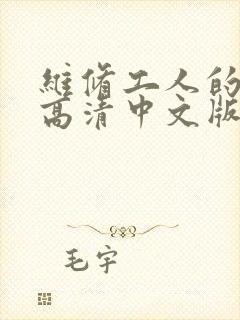 維脩工人的
高清中文版
毛宇